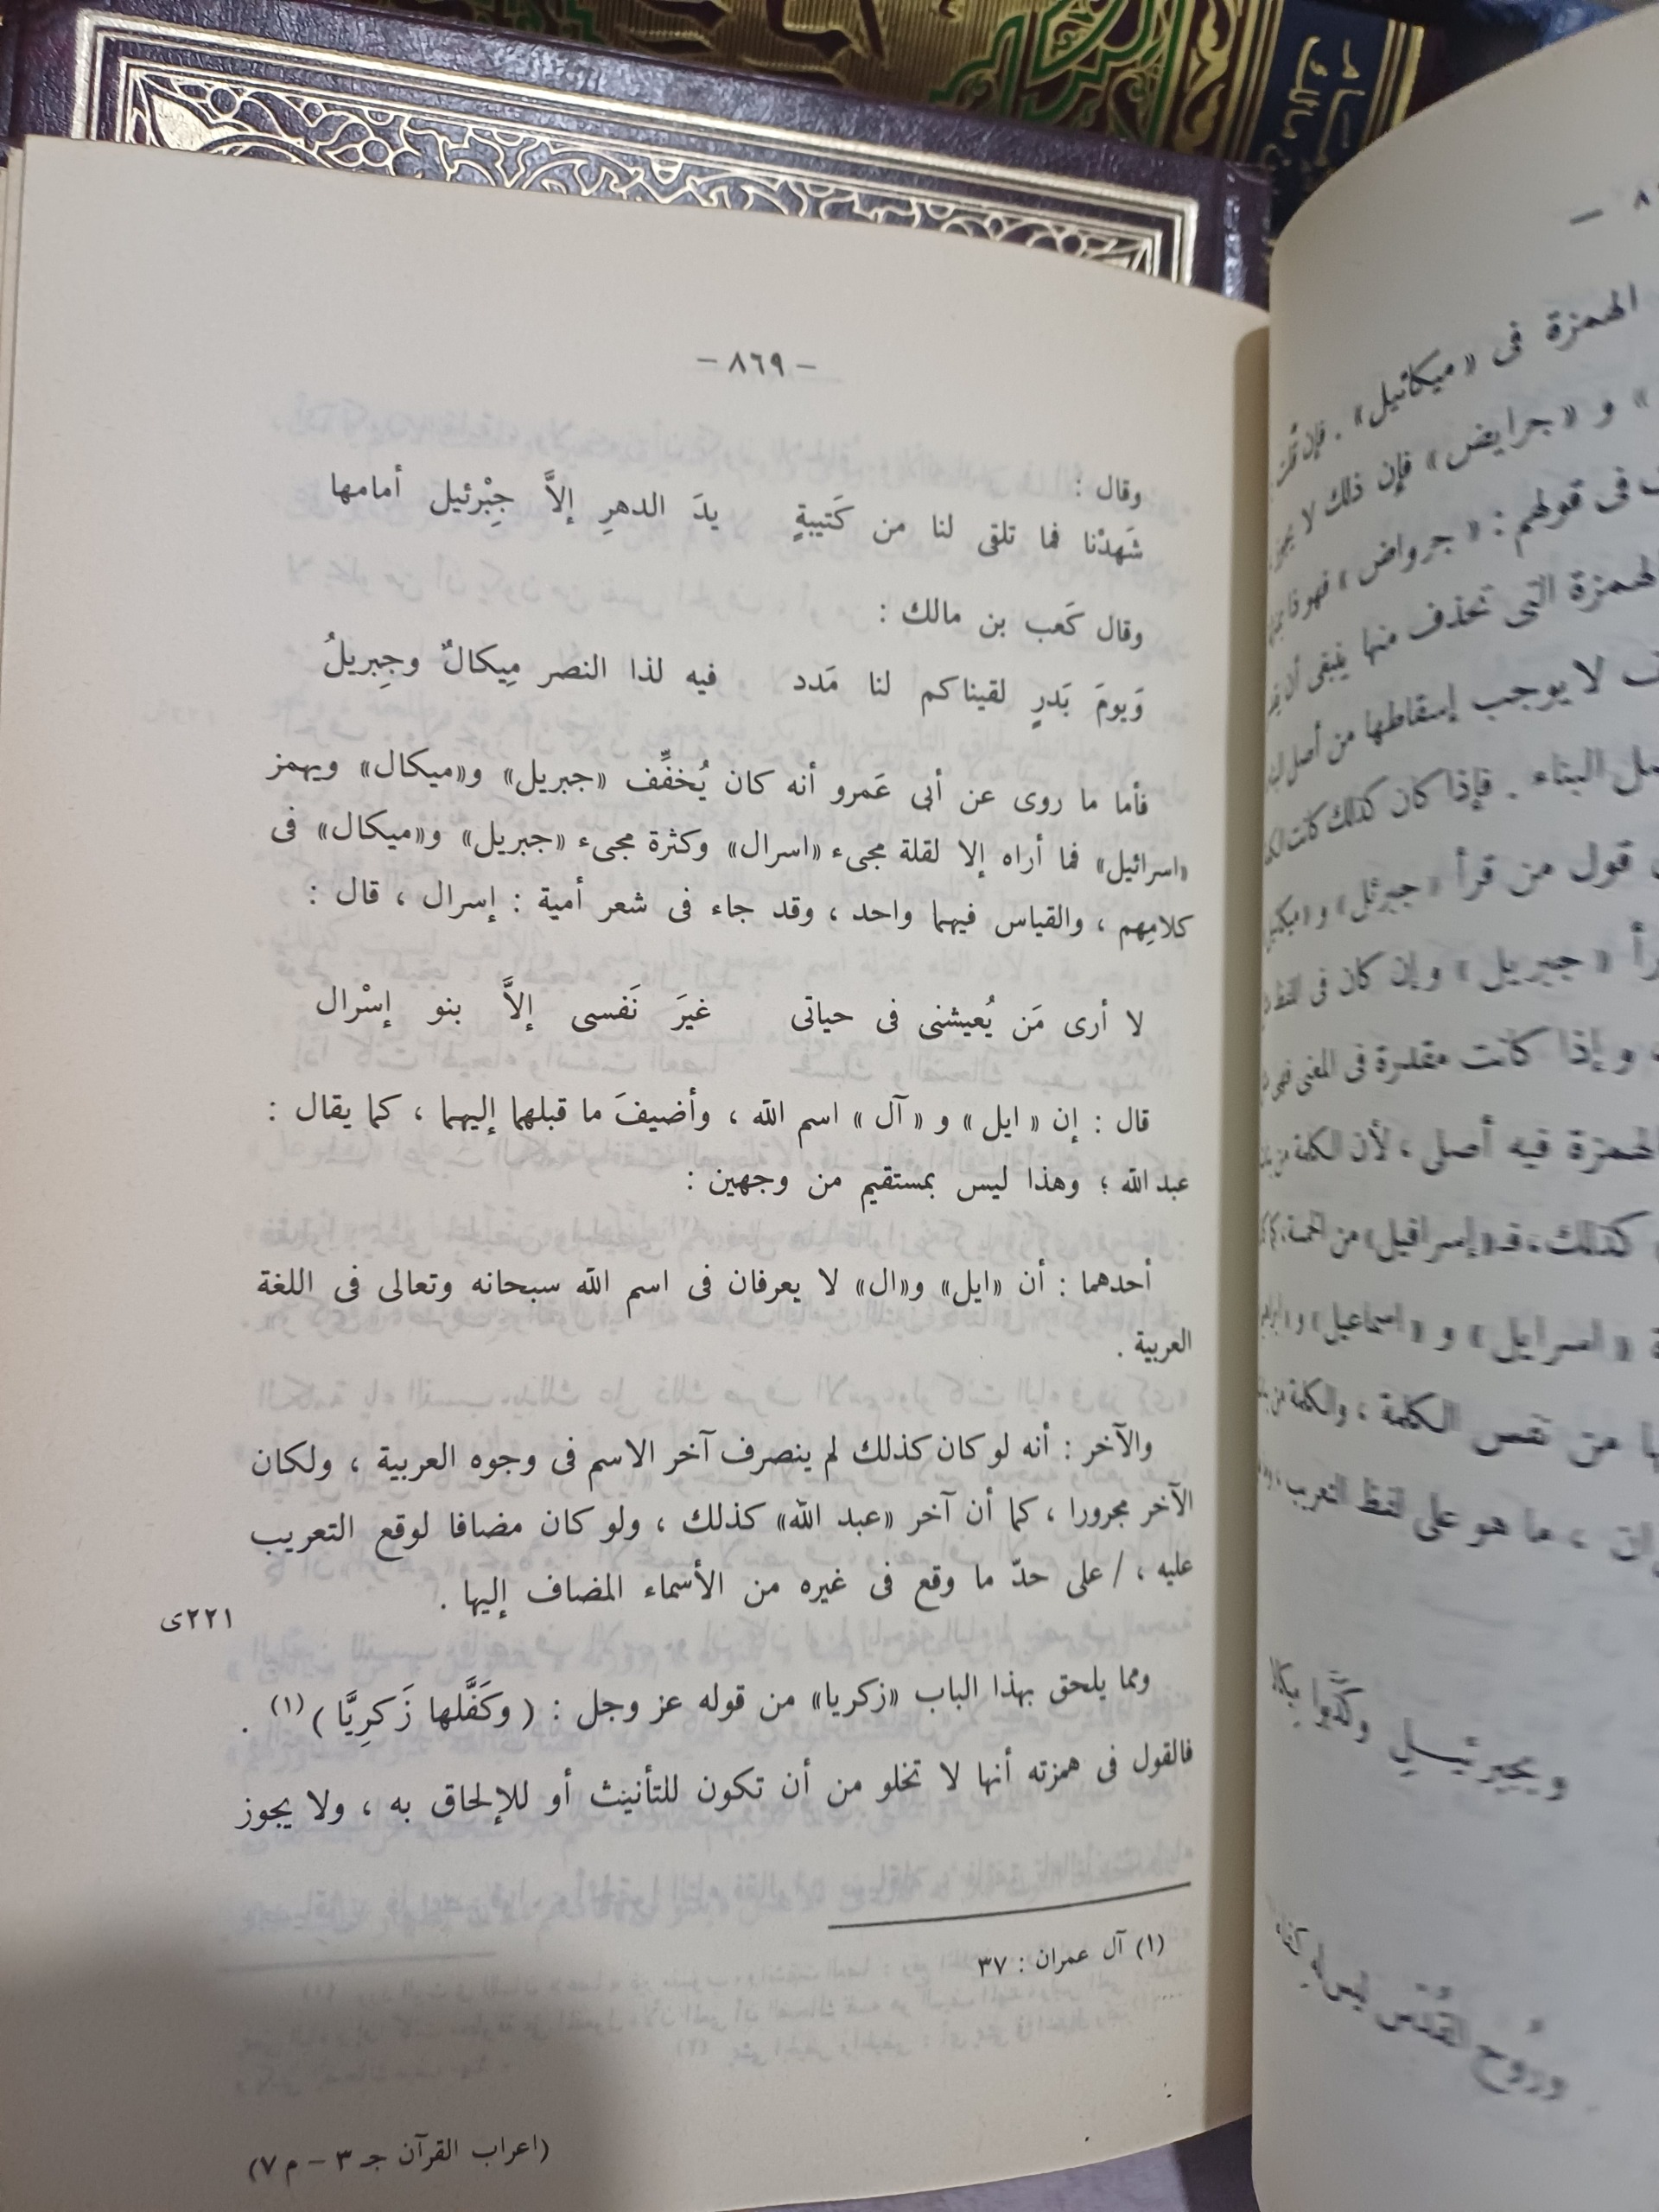 – ٨٦٩ –
وقال :
شَهدْنا فما تلقى لنا من كَتيبةٍ يدَ الدهرِ إلاَّ جِبْرئيل أمامها
وقال كَعب بن مالك :
وَيومَ بَدرٍ لقيناكم لنا مَدد فيه لذا النصر مِيكالٌ وجِبريلُ
فأما ما روى عن أبى عَمرو أنه كان يُخفِّف «جبريل» و«ميكال» ويهمز
«اسرائيل» فما أراه إلا لقلة مجىء «اسرال» وكثرة مجىء «جبريل» و«ميكال» فى
كلامِهم ، والقياس فيهما واحد ، وقد جاء فى شعر أمية : إسرال ، قال :
لا أرى مَن يُعيشنى فى حياتى غيرَ نَفسى إلاَّ بنو إسْرال
قال : إن « ايل » و « آل » اسم الله ، وأضيفَ ما قبلهما إليهما ، كما يقال :
عبد الله ؛ وهذا ليس بمستقيم من وجهين :
أحدهما : أن «ايل» و«ال» لا يعرفان فى اسم الله سبحانه وتعالى فى اللغة
العربية .
والآخر : أنه لو كان كذلك لم ينصرف آخر الاسم فى وجوه العربية ، ولكان
الآخر مجرورا ، كما أن آخر «عبد الله» كذلك ، ولو كان مضافا لوقع التعريب
عليه ، / على حدّ ما وقع فى غيره من الأسماء المضاف إليها .
٢٢١ى
ومما يلحق بهذا الباب «زكريا» من قوله عز وجل : ( وكَفَّلها زَكرِيَّا ) (١) .
فالقول فى همزته أنها لا تخلو من أن تكون للتأنيث أو للإلحاق به ، ولا يجوز
(١) آل عمران : ٣٧
(اعراب القرآن جـ ٣ – م ٧)
الهمزة فى « ميكائيل» . فإن قلت
» و « جرايض » فإن ذلك لا
فى قولهم : « جرواض » فهو
لهمزة التى تحذف منها ينبغى أن
لا يوجب إسقاطها من أصل
البناء . فإذا كان كذلك كانت
قول من قرأ « جبرئل » و
« جبريل » وإن كان فى اللفظ
، وإذا كانت مقدرة فى المعنى فهى
لهمزة فيه أصلى ، لأن الكلمة من
كذلك ، فـ «إسرافيل» من الخمسة ،
« اسرايل » و « اسماعيل» و
من نفس الكلمة ، والكلمة من
، ما هو على لفظ التعريب ،
وبجبرئيل وكذَّبوا
وروح القُدُس ليس له